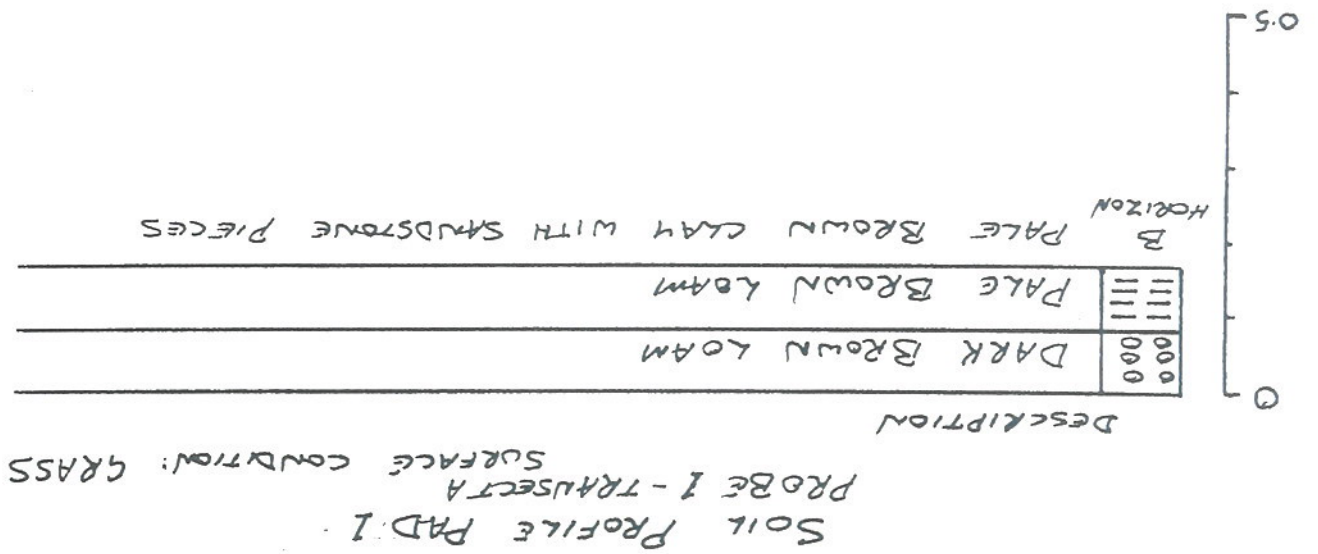 SOIL PROFILE PAD 1
PROBE 1 - TRANSECT A
SURFACE CONDITION: GRASS
DESCRIPTION
0
DARK BROWN LOAM
PALE BROWN LOAM
B HORIZON
PALE BROWN CLAY WITH SANDSTONE PIECES
0.5